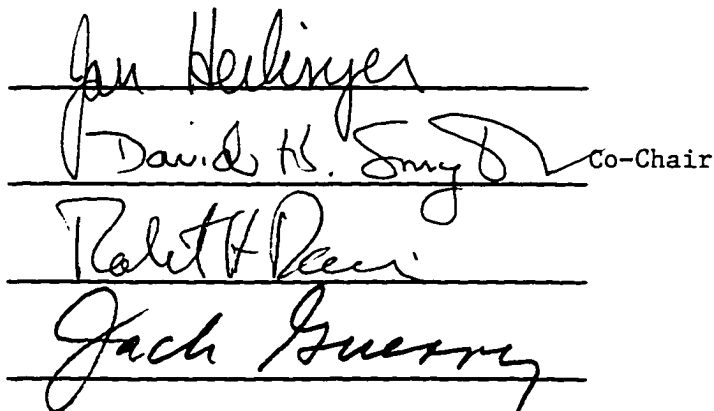 Jan Herlinger
David H. Smyth Co-Chair
Robert H
Jack Guerry